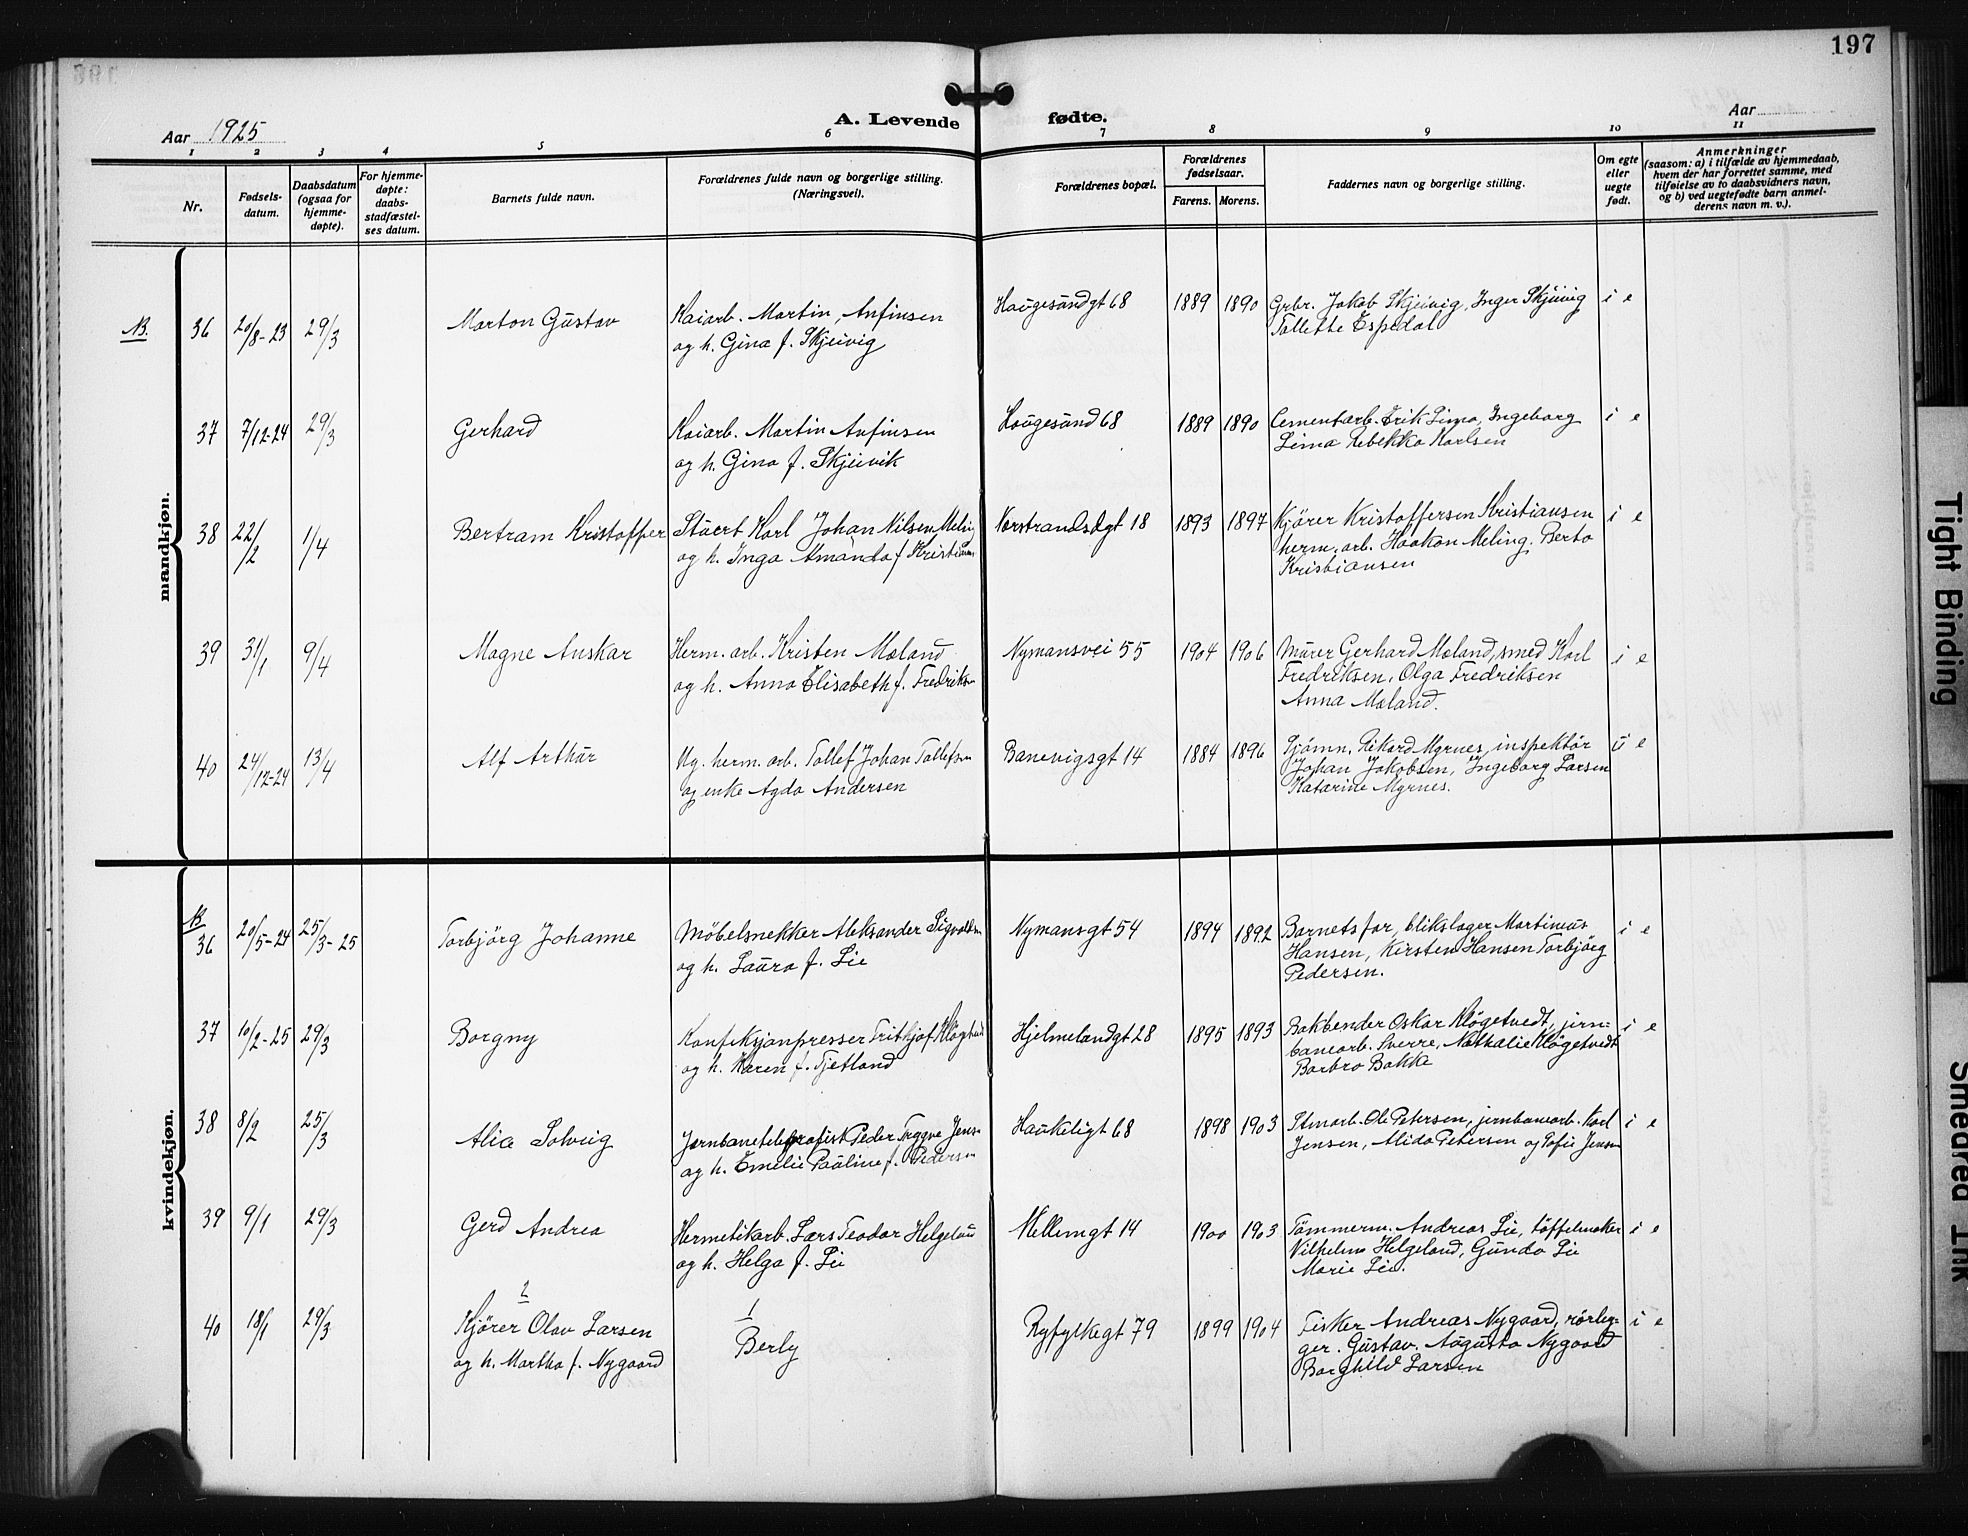 197
Aar 1925
A. Levende fødte.
Aar
1 2 3 4 5 6 7 8 9 10 11
Nr.
Fødsels-
datum.
Daabsdatum
(ogsaa for
hjemme-
døpte).
For hjemme-
døpte:
daabs-
stadfæstel-
ses datum.
Barnets fulde navn.
Forældrenes fulde navn og borgerlige stilling.
(Næringsvei).
Forældrenes bopæl.
Forældrenes
fødselsaar.
Farens. Morens.
Faddernes navn og borgerlige stilling.
Om egte
eller
uegte
født.
Anmerkninger
(saasom: a) i tilfælde av hjemmedaab,
hvem der har forrettet samme, med
tilføielse av to daabsvidners navn,
og b) ved uegtefødte barn anmel-
derens navn m. v.).
mandkjøn.
N. 36 20/8-23 29/3 Marton Gustav Kaiarb. Martin Anfinsen Haugesundgt 68 1889 1890 Grbr. Jakob Skjeivig, Inger Skjeivig i e
og h. Gina f. Skjeivig Tollette Espedal
37 7/12-24 29/3 Gerhard Kaiarb. Martin Anfinsen Haugesund 68 1889 1890 Cementarb. Erik Lima, Ingeborg i e
og h. Gina f. Skjeivik Lima Rebekka Karlsen
38 22/2 1/4 Bertram Kristoffer Stuert Karl Johan Nilsen Meling 18 1893 1897 Kjører Kristoffersen Kristiansen i e
og h. Inga Amanda f. herm. arb. Haakon Meling. Berta
Kristiansen
39 31/1 9/4 Magne Anskar Herm. arb. Kristen Mæland Nymansvei 55 1904 1906 Murer Gerhard Mæland, smed Karl i e
og h. Anna Elisabeth f. Fredriksen Fredriksen, Olga Fredriksen
Anna Mæland.
40 24/12-24 13/4 Alf Arthur Ug. herm. arb. Tollef Johan Tollefsen Banevigsgt 14 1884 1896 Sjømn. Rikard Myrnes, inspektør u e
og enke Agda Andersen Johan Jakobsen, Ingeborg Larsen
Katarine Myrnes.
kvindekjøn.
N. 36 20/5-24 25/3-25 Torbjörg Johanne Möbelsnekker Aleksander Sigvaldsen Nymansgt 54 1894 1892 Barnets far, blikslager Martinius i e
og h. Laura f. Lie Hansen, Kirsten Hansen Torbjörg
Pedersen.
37 10/2-25 29/3 Borgny Konfeksjonpresser Fritjof Kløgetvedt Hjelmelandgt 28 1895 1893 Bokbender Oskar Kløgetvedt, jern- i e
og h. Karen f. Tjetland banearb. Sverre, Nathalie Kløgetvedt
Barbro Bakke
38 8/2 25/3 Alice Solveig Jernbanetelegrafist Peder Trygve Jensen Haukeligt 68 1898 1903 Stenarb. Ole Petersen, jernbanearb. Karl i e
og h. Emelie Pauline f. Pedersen Jensen, Alida Petersen og Sofie Jensen
39 9/1 29/3 Gerd Andrea Hermetikarb. Lars Teodor Helgeland Mellemgt 14 1900 1903 Tømmerm. Andreas Lie, tøffelmaker i e
og h. Helga f. Lie Vilhelm Helgeland, Gunda Lie
Marie Lie.
2 1
40 18/1 29/3 Kjører Olav Larsen Berly Ryfylkegt 79 1899 1904 Fisker Andreas Nygaard, rørleg- i e
og h. Martha f. Nygaard ger. Gustav. Augusta Nygaard
Borghild Larsen
Tight Binding
Smeared Ink